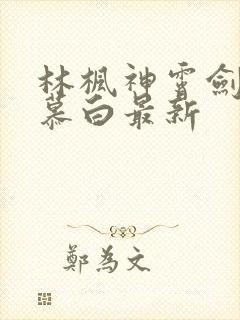 林楓神霄劍
慕白最新
鄭為文